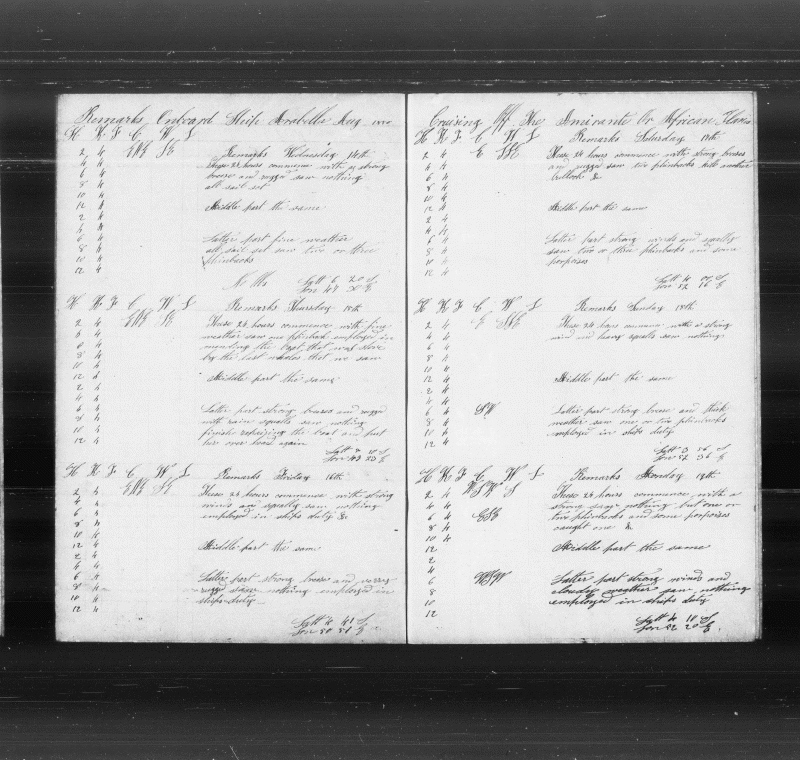 Remarks Onboard Ship Arabella Aug
H K F C W L
2 4 ENE SE
4 4
6 4
8 4
10 4
12 4
2 4
4 4
6 4
8 4
10 4
12 4
Remarks Wednesday 14th
These 24 hours commence with a strong
breese and rugged saw nothing
all sail set
Middle part the same
Latter part fine weather
all sail set saw two or three
finbacks
Latt 5 20 S
Lon 49 E
H K F C W L
Remarks Thursday 15th
2 4 ENE SE
4 4
6 4
8 4
10 4
12 4
2 4
4 4
6 4
8 4
10 4
12 4
These 24 hours commence with fine
weather saw one finback employed in
mending the boat that was stove
by the last whales that we saw
Middle part the same
Latter part strong breeses and rugged
with rain squalls saw nothing
finish repairing the boat and put
her over head again
Latt 10 S
Lon 49 23 E
H K F C W L
Remarks Friday 16th
2 4 ENE SE
4 4
6 4
8 4
10 4
12 4
2 4
4 4
6 4
8 4
10 4
12 4
These 24 hours commence with strong
winds and squally saw nothing
employed in ships duty &
Middle part the same
Latter part strong breese and
rugged saw nothing employed in
ships duty
Latt 4 41 S
Lon 50 51 E
Cruising Off The Amirante Or African Islan
H K F C W L
Remarks Saturday 17th
2 4 E SSE
4 4
6 4
8 4
10 4
12 4
2 4
4 4
6 4
8 4
10 4
12 4
These 24 hours commence with strong breeses
and rugged saw two finbacks kill another
bullock &
Middle part the same
Latter part strong winds and squally
saw two or three finbacks and some
porpoises
Latt 4 S
Lon 52 16 E
H K F C W L
Remarks Sunday 18th
2 4 E SSE
4 4
6 4
8 4
10 4
12 4
2 4
4 4
6 4 SW
8 4
10 4
12 4
These 24 hours commence with a strong
wind and heavy squalls saw nothing
Middle part the same
Latter part strong breese and thick
weather saw one or two finbacks
employed in ships duty
Latt 3 56 S
Lon 52 36 E
H K F C W L
Remarks Monday 19th
2 4 WSW S
4 4
6 4 ESE
8 4
10 4
12
2
4
6 WSW
8
10
12
These 24 hours commence with a
strong saw nothing but one or
two finbacks and some porpoises
caught one &
Middle part the same
Latter part strong winds and
cloudy weather saw nothing
employed in ships duty
Latt 4 10 S
Lon 52 20 E